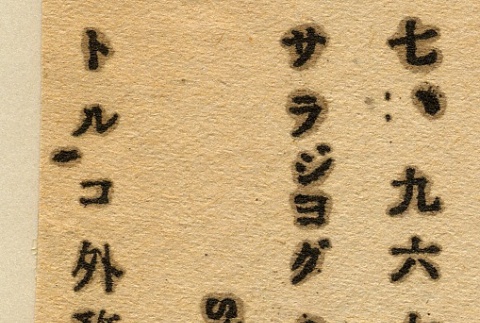 七、九六
サラジョグ
S
トルコ外